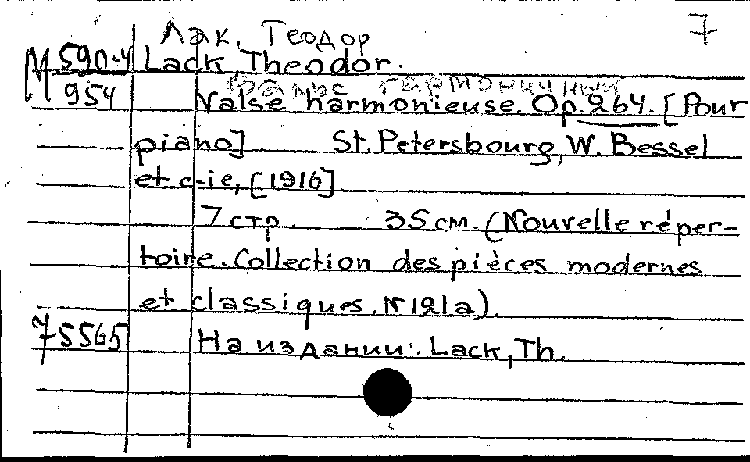 Лак, Теодор 7
М 590-4 Lack Theodor.
954 Вальс гармоничный
Valse harmonieuse. Op. 264. [Pour
piano] St. Petersbourg, W. Bessel
et c-ie, [1916]
7 стр. 35 см. (Nouvelle réper-
toire. Collection des pièces modernes
et classiques. N 121a).
75565 На издании: Lack, Th.